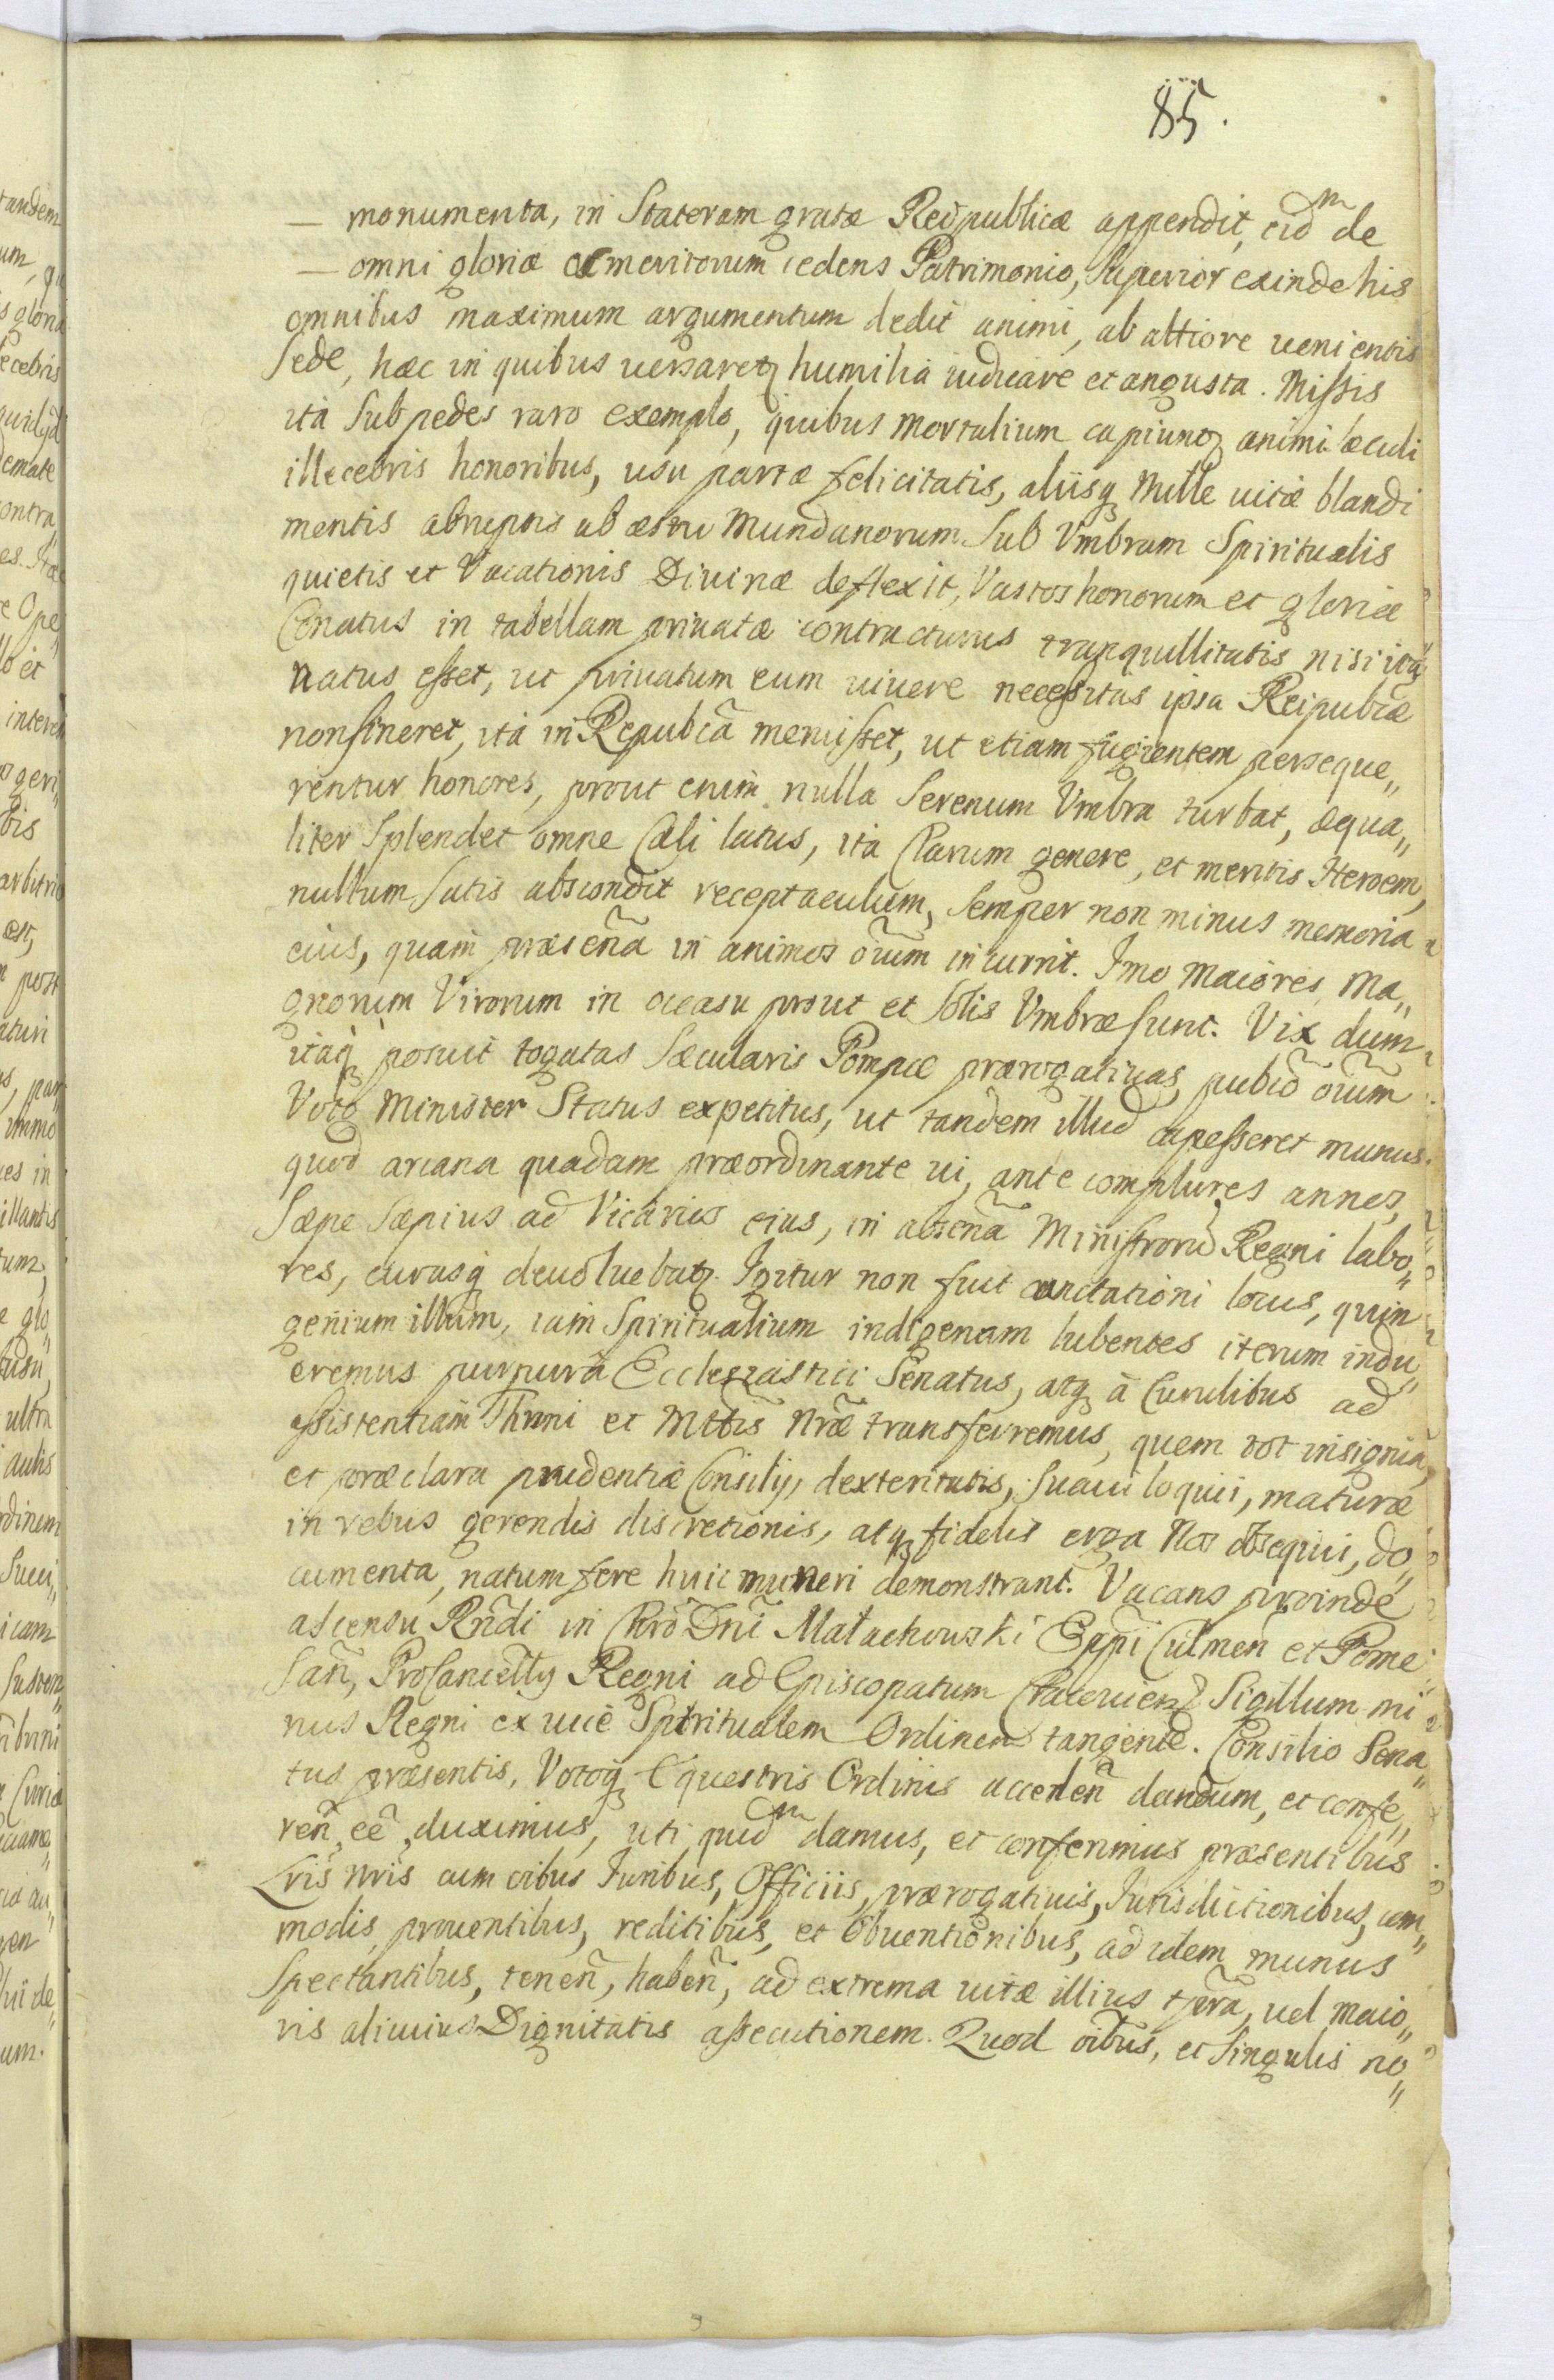 85.
— monumenta, in Stateram gratæ Reipublicæ appendit, eid^m de
— omni gloriæ ac meritorum cedens Patrimonio, Superior exinde his
omnibus maximum argumentum dedit animi, ab altiore uenientis
Sede, hæc in quibus uersaretꝫ humilia iudicare et angusta. Missis
ita Sub pedes raro exemplo, quibus Mortalium capiuntꝫ animi sæculi
illecebris honoribus, usu partæ felicitatis, aliisqꝫ Mille uitæ blandi
mentis abreptus ab æstu Mundanorum Sub Vmbram Spiritualis
quietis et Vacationis Diuinæ deflexit, Vastos honorum et gloriæ
Conatus in tabellam priuatæ contracturus tranquillitatis nisi ita
natus esset, ut priuatum eum uiuere necessitas ipsa Reipubcæ
non sineret, ita in Repubcã meruisset, ut etiam fugientem perseque„
rentur honores, prout enim nulla Serenum Vmbra turbat, æqua„
liter Splendet omne Cæli latus, ita Clarum genere, et meritis Heroem,
nullum Satis abscondit receptaculum, Semper non minus memoria
eius, quam præsenã in animos oium incurrit. Imo maiores Ma„
gnorum Virorum in occasu prout et Solis Vmbræ Sunt. Vix dum
itaqꝫ posuit togatas Sæcularis Pompæ prærogatiuas, pubcõ oium
Voto Minister Status expetitus, ut tandem illud capesseret munus.
quod arcana quadam præordinante ui, ante complures annos,
Sæpe Sæpius ad Vicarias eius, in absenã Ministrorũ Regni labo„
res, curasqꝫ deuoluebatꝫ. Igitur non fuit cunctationi locus, quin
genium illum, iam Spiritualium indigenam lubentes iterum indu„
eremus purpurâ Ecclesiastici Senatus, atqꝫ à Curulibus ad
assistentiam Throni et Mttis Nræ transferremus, quem tot insignia,
et præclara prudentiæ Consilij, dexteritatis, Suauiloquii, maturæ
in rebus gerendis discretionis, atqꝫ fidelis erga Nos obsequii, do„
cumenta, natum fere huic muneri demonstrant. Vacans proinde
ascensu Rndi in Chrõ Dni Małachowski Eppi Culmeñ et Pome
sañ, Procancellꝫ Regni ad Episcopatum Cracouień Sigillum mi
nus Regni ex uice Spiritualem Ordinem tangente. Consilio Sena„
tus præsentis, Votoqꝫ Equestris Ordinis accedeñ dandum, et confe„
reñ eê duximus, uti quid^m damus, et conferimus præsentibus
Lris Nris cum oibus Iuribus, Officiis, prærogatiuis, Iurisdictionibus, com„
modis, prouentibus, reditibus, et Obuentionibus, ad idem munus
Spectantibus, teneñ, habeñ, ad extrema uitæ illius tpra, uel maio„
ris alicuius Dignitatis assecutionem. Quod oibus, et Singulis no„